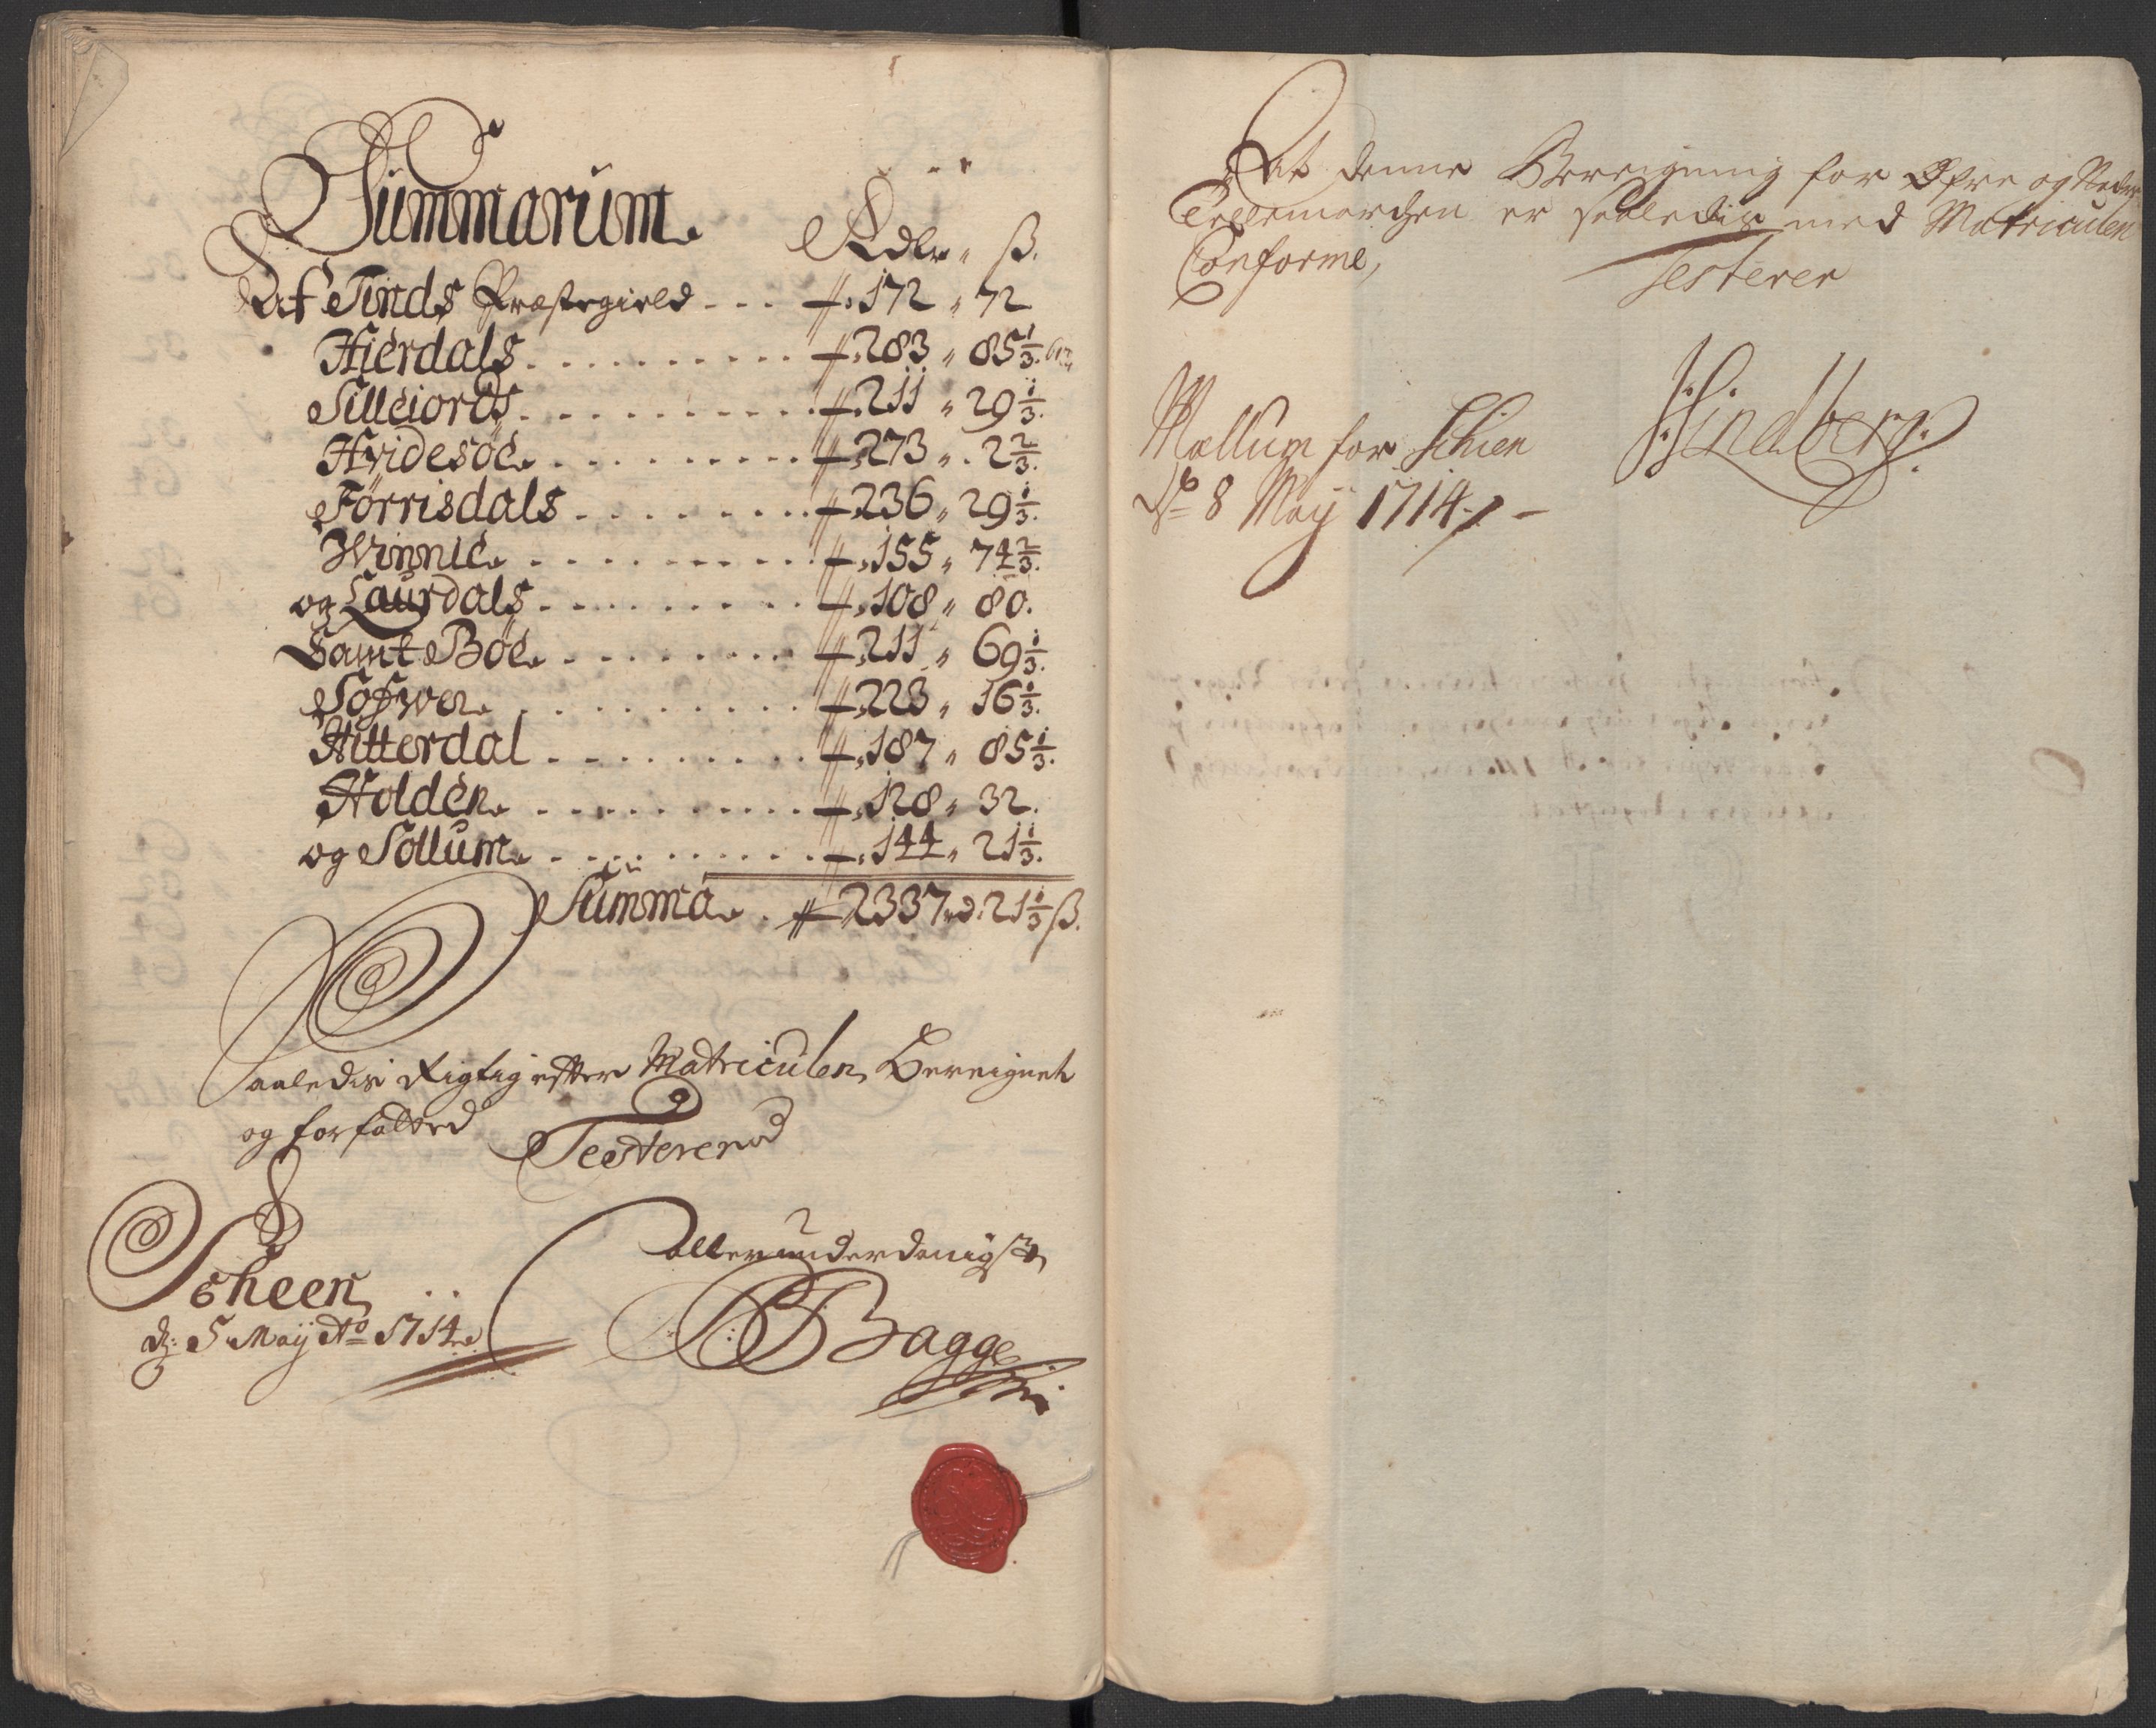 Summarum
Rdlr " ß.
Af Tinds Præstegield - - - 172 " 72
Hierdals . . . . . . . . . . 283 " 85 1/3.
Silleiords . . . . . . . . . . 211 " 29 1/3.
Hvidesöe . . . . . . . . . 273 " . 2 2/3.
Förrisdals . . . . . . . . 236 " 29 1/3.
Winnie . . . . . . . . . . 155 " 74 2/3.
og Laurdals . . . . . . . . . 108 " 80.
Samt Böe . . . . . . . . . 211 " 69 1/3.
Söfwer . . . . . . . . . . 223 " 16 1/3.
Hitterdal . . . . . . . . . 187 " 85 1/3.
Holden . . . . . . . . . . 128 " 32.
og Sollum . . . . . . . . . . 144 " 21 1/3.
Summa . 2337 rd. 21 1/3 ß.
Saaledis Rigtig efter Matriculen Bereignet
og forfatted
Testerer
Scheen
d: 5 Maij Ao 1714
allerunderdanigst
Bagge
At denne Bereigning for Øfre og Nedre
Tellemarchen er saaledis med Matriculen
Conforme,
Testerer
Mællum for Schien
d 8 Maij 1714
Lindberg